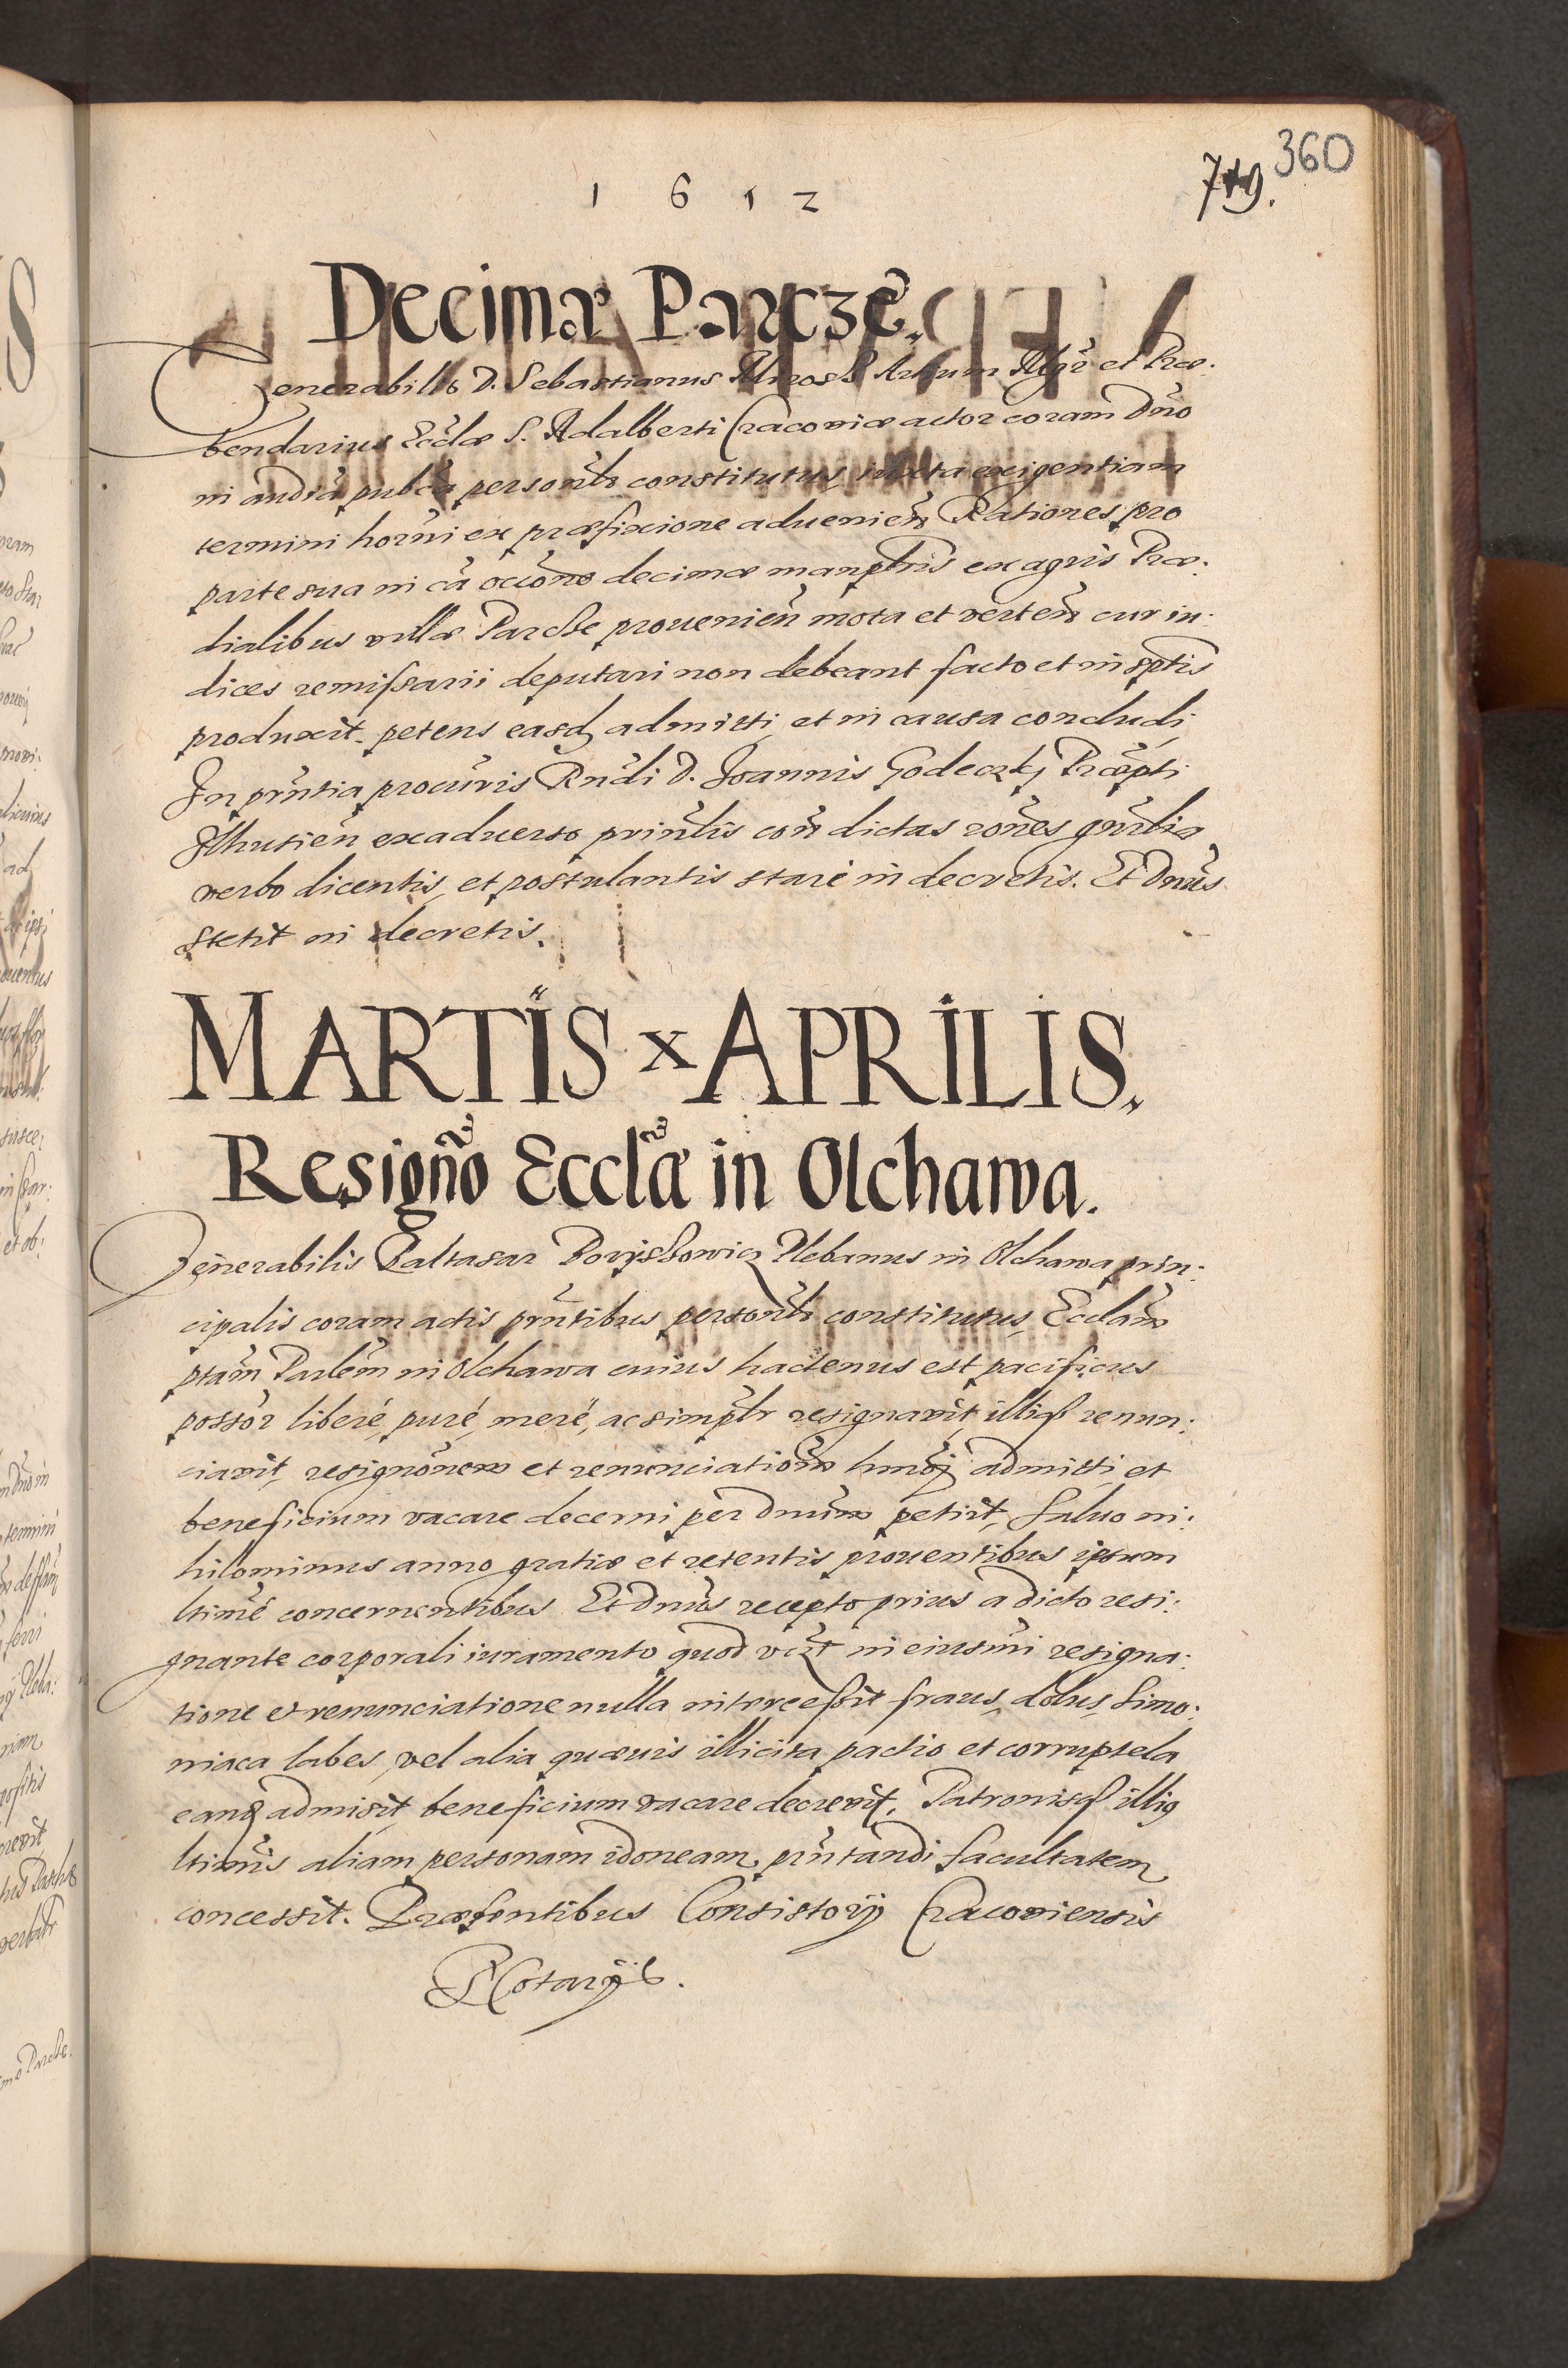 1612
719. 360
Decimæ Parczē.
Venerabilis D. Sebastianus Mrosk Artium Mgr̃ et Præ:
bendarius Ecclæ S. Adalberti Cracoviæ actor coram Dño
in audiã publcã personlr̃ constitutus, iuxta exigentiam
termini horñi ex præfixione advenieñ Rationes pro
parte sua in cã occõne decimæ manplris ex agris Præ:
dialibus villæ Parcze provenieñ mota et verteñ cur iu:
dices remissarii deputari non debeant facto et in sptis
produxit. petens easdem admitti, et in causa concludi,
In prñtia procũris Rñdi D. Joannis Godeczkj Præpti
Ilkusieñ ex adverso prinlis coñ dictas rões gñrlia
verbo dicentis, et postulantis stare in decretis. Et Dnũs
stetit in decretis.
MARTIS x APRILIS.
Resignõ Ecclæ in Olchawa.
Venerabilis Baltasar Plebanus in Olchawa prin:
cipalis coram actis prñtibus personlr̃ constitutus, Ecclam̃
ptãm Parlẽm in Olchawa cuius hactenus est pacificus
possor̃ liberè, purè, merè, ac simplr̃ resignavit, illiq̃ renun:
ciavit, resignõnem et renunciatioñm hmõj admitti, et
beneficium vacare decerni per Dnũm petiit, Salvo ni:
hilominus anno gratiæ et retentis proventibus ipsum
ltimẽ concernentibus. Et Dnũs recepto prius a dicto resi:
gnante corporali iuramento quod vizt in eiusmĩ resigna:
tione et renunciatione nulla intercessit fraus, dolus, Simo:
niaca labes, vel alia quævis illicita pactio et corruptela
eandem admisit, beneficium vacare decrevit, Patronisq̃ illiq
ltimis aliam personam idoneam prñtandi facultatem
concessit. Præsentibus Consistorij Cracoviensis
Notarijs.